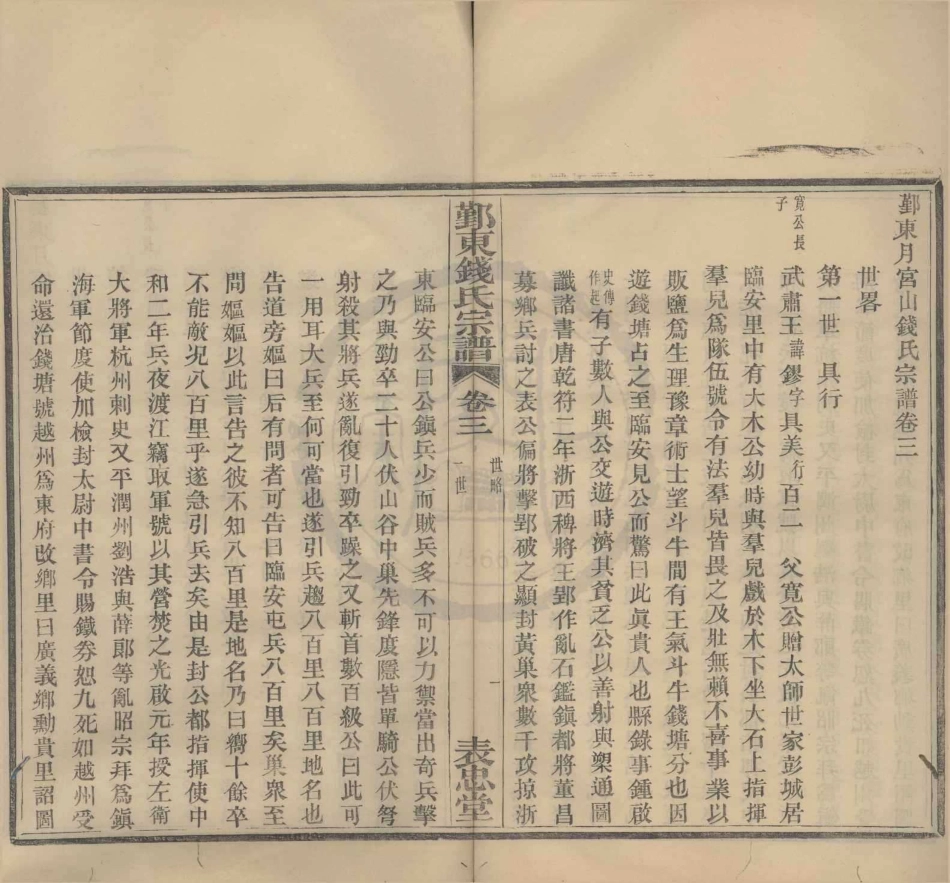 鄞東月宮山錢氏宗譜卷三
世畧
第一世　具行
寬公長子
武肅王諱鏐字具美行百二　父寬公贈太師世家彭城居
臨安里中有大木公幼時與羣兒戲於木下坐大石上指揮
羣兒爲隊伍號令有法羣兒皆畏之及壯無賴不喜事業以
販鹽爲生理豫章術士望斗牛間有王氣斗牛錢塘分也因
遊錢塘占之至臨安見公而驚曰此眞貴人也縣錄事鍾啟
史傳作起有子數人與公交遊時濟其貧乏公以善射與槊通圖
讖諸書唐乾符二年浙西稗將王郢作亂石鑑鎭都將董昌
募鄉兵討之表公偏將擊郢破之顯封黃巢衆數千攻掠浙
鄞東錢氏宗譜　卷三　世略　一世　一　表忠堂
東臨安公曰公鎭兵少而賊兵多不可以力禦當出奇兵擊
之乃與勁卒二十人伏山谷中巢先鋒度隱皆單騎公伏弩
射殺其將兵遂亂復引勁卒蹂之又斬首數百級公曰此可
一用耳大兵至何可當也遂引兵趨八百里八百里地名也
告道旁嫗曰后有問者可告曰臨安屯兵八百里矣巢衆至
問嫗嫗以此言告之彼不知八百里是地名乃曰嚮十餘卒
不能敵况八百里乎遂急引兵去矣由是封公都指揮使中
和二年兵夜渡江竊取軍號以其營焚之光啟元年授左衛
大將軍杭州刺史又平潤州劉浩與薛郎等亂昭宗拜爲鎭
海軍節度使加檢封太尉中書令賜鐵券恕九死如越州受
命還治錢塘號越州爲東府改鄉里曰廣義鄉勳貴里詔圖